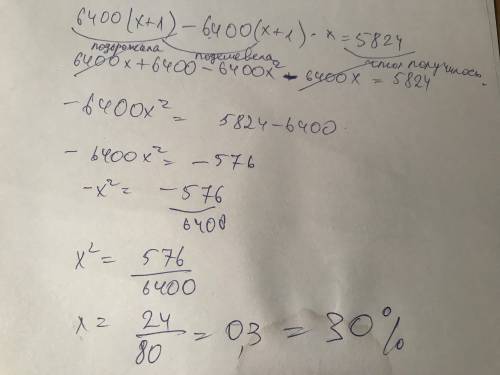 6400(x+1) - 6400(x+1) · x = 5824
подорожала подешевела итог получилось.
6400x + 6400 - 6400x² - 6400x = 5824
-6400x² = 5824 - 6400
- 6400x² = - 576
-x² = -576/6400
x² = 576/6400
x = 24/80 = 0,3 = 30%